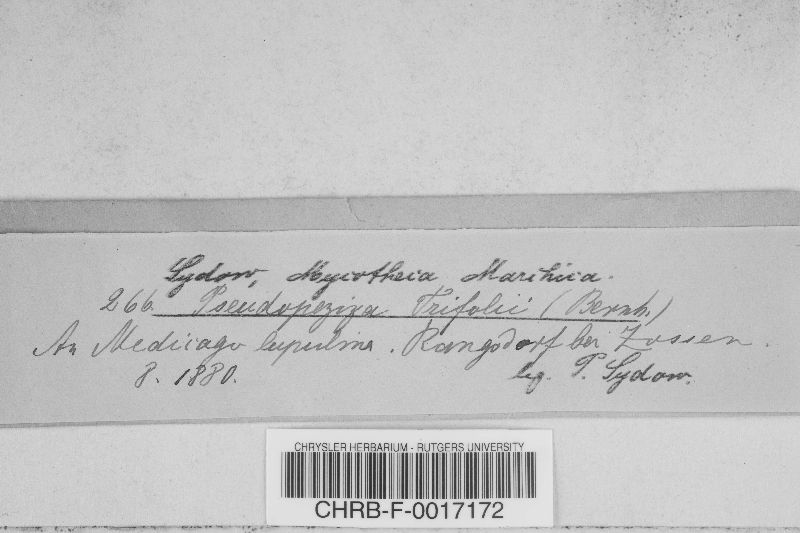 Sydow, Mycotheca Marchica.
266. Pseudopeziza Trifolii (Bernh.)
An Medicago lupulina. Rangsdorf bei Zossen.
8. 1880. leg. P. Sydow.
CHRYSLER HERBARIUM - RUTGERS UNIVERSITY
CHRB-F-0017172